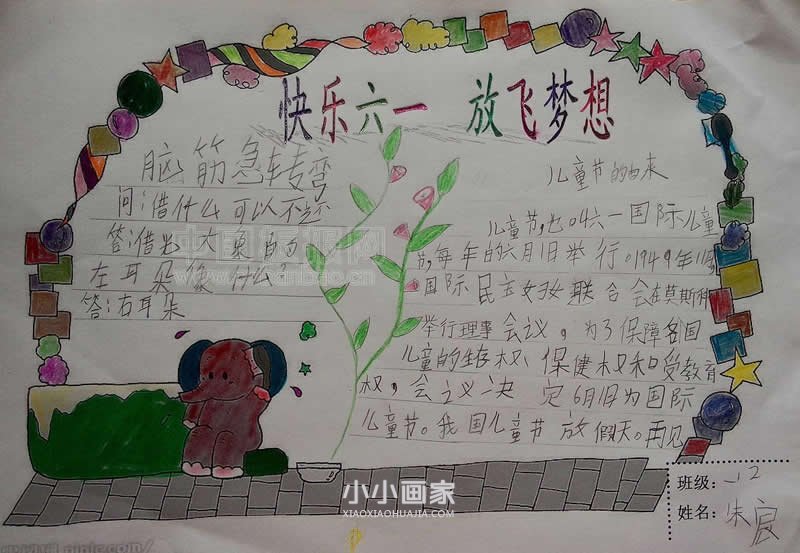 快乐六一 放飞梦想
脑筋急转弯
问:借什么可以不还
答:借出 大象的
左耳朵像什么?
答:右耳朵
儿童节的由来
儿童节,也叫六一国际儿童
节,每年的六月1日举行。1949年11月
国际民主妇女联合会在莫斯科
举行理事会议,为了保障各国
儿童的生存权、保健权和受教育
权,会议决定6月1日为国际
儿童节。我国儿童节放假天。再见
小小画家
XIAOXIAOHUAJIA.COM
班级:
姓名:朱宸